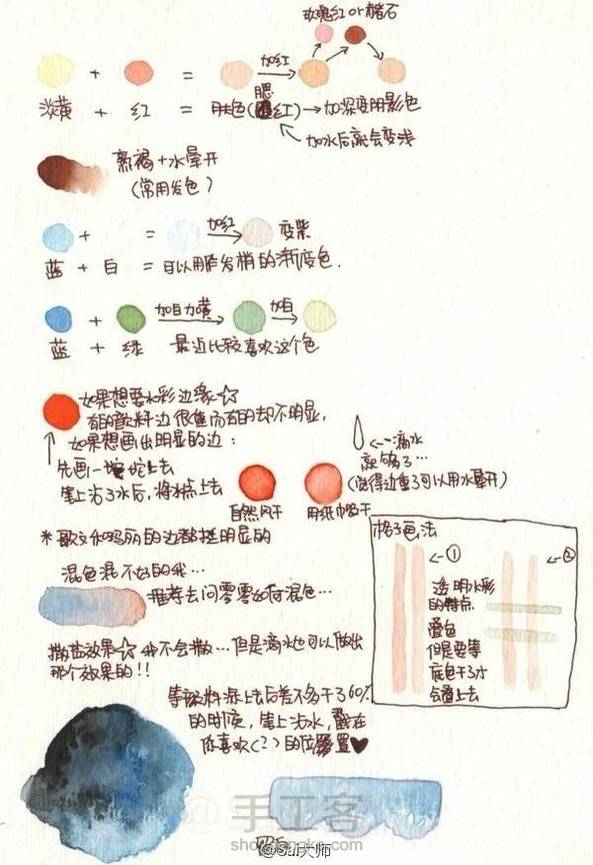 玫瑰红 or 赭石
+ = 加红
淡黄 + 红 = 肤色(腮红)→加深变阴影色
加水后就会变浅
熟褐+水晕开
(常用发色)
+ = 加红 变紫
蓝 + 白 = 可以用作发梢的渐变色.
+ 加白加黄 加白
蓝 + 绿 最近比较喜欢这个色
如果想要水彩边缘☆
有的颜料边很重而有的却不明显,
如果想画出明显的边:
先画一坨坨上去
笔上沾了水后,将水点上去
←--滴水
就够了…
(觉得边重了可以用水晕开)
自然风干
用纸巾吸干
*歌文达吗丽的边都挺明显的
混色混不好的我…
推荐去问零零如何混色…
撒盐效果☆我不会撒…但是滴水也可以做出
那个效果的!!
格子画法
←① ←②
透明水彩
的特点
叠色
但是要等
底色干了才
会叠上去
等颜料涂上去后差不多干了60%
的时候,笔上沾水,戳在
你喜欢(?)的位置♥
手工客
shougongke.com
@Sai大师